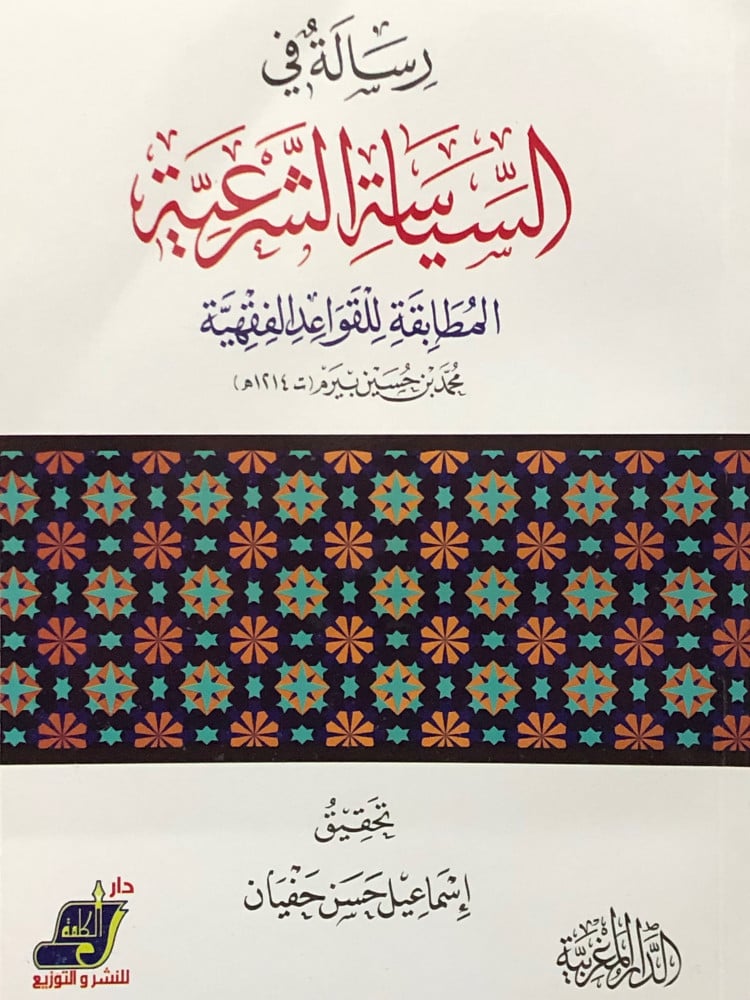 رِسَالَةٌ فِي
السِّيَاسَةِ الشَّرْعِيَّةِ
المُطَابِقَةِ لِلْقَوَاعِدِ الفِقْهِيَّةِ
مُحَمَّد بْن حُسَيْن بَيْرَم (ت ١٢١٤هـ)
تَحْقِيقُ
إِسْمَاعِيل حَسَن حَفْيَان
دار
الكلمة
للنشر و التوزيع
الدَّارُ المَغْرِبِيَّة